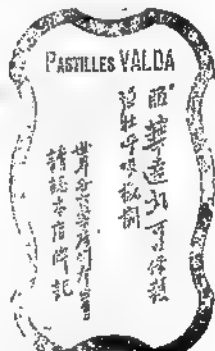 PASTILLES VALDA
服華達丸可保
壯呼吸機關
世界各大藥房均有出售
請認本店牌記